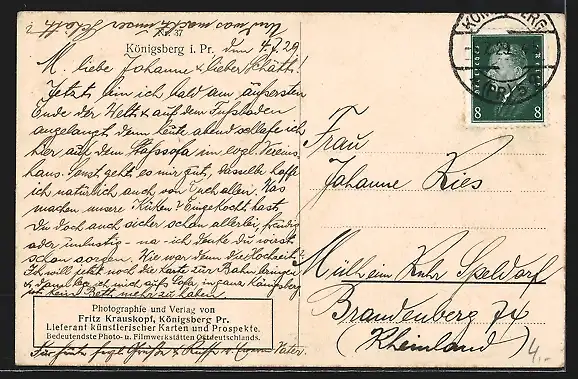 Und was macht unser Schatz?
K. 37
Königsberg i. Pr. den 4.7.29
M. liebe Johanne & lieber Schatz!
Jetzt bin ich bald am äußersten
Ende der Welt & auf dem Fußboden
angelangt, denn heute abend schlafe ich
hier auf dem Schlafsofa im evgl. Vereins-
haus. Sonst geht es mir gut, dasselbe hoffe
ich natürlich auch von Euch allen. Was
machen unsere Küken? Eingekocht hast
Du doch auch sicher schon allerlei, freudig
oder unlustig – na – ich denke Du wirst
schon sorgen. Wie war denn die Hochzeit?
Ich will jetzt noch die Karte zur Bahn bringen
& dann lege ich mich aufs Sofa, in ganz Königsberg
ist kein Bett mehr zu haben.
Photographie und Verlag von
Fritz Krauskopf, Königsberg Pr.
Lieferant künstlerischer Karten und Prospekte.
Bedeutendste Photo- u. Filmwerkstätten Ostdeutschlands.
Für heute Grüße & Küsse Vater.
KÖNIGSBERG
(PR) 5
8 8
Frau
Johanne Ries
Mülheim Ruhr Speldorf
Brandenberg 74
(Rheinland)
4,-